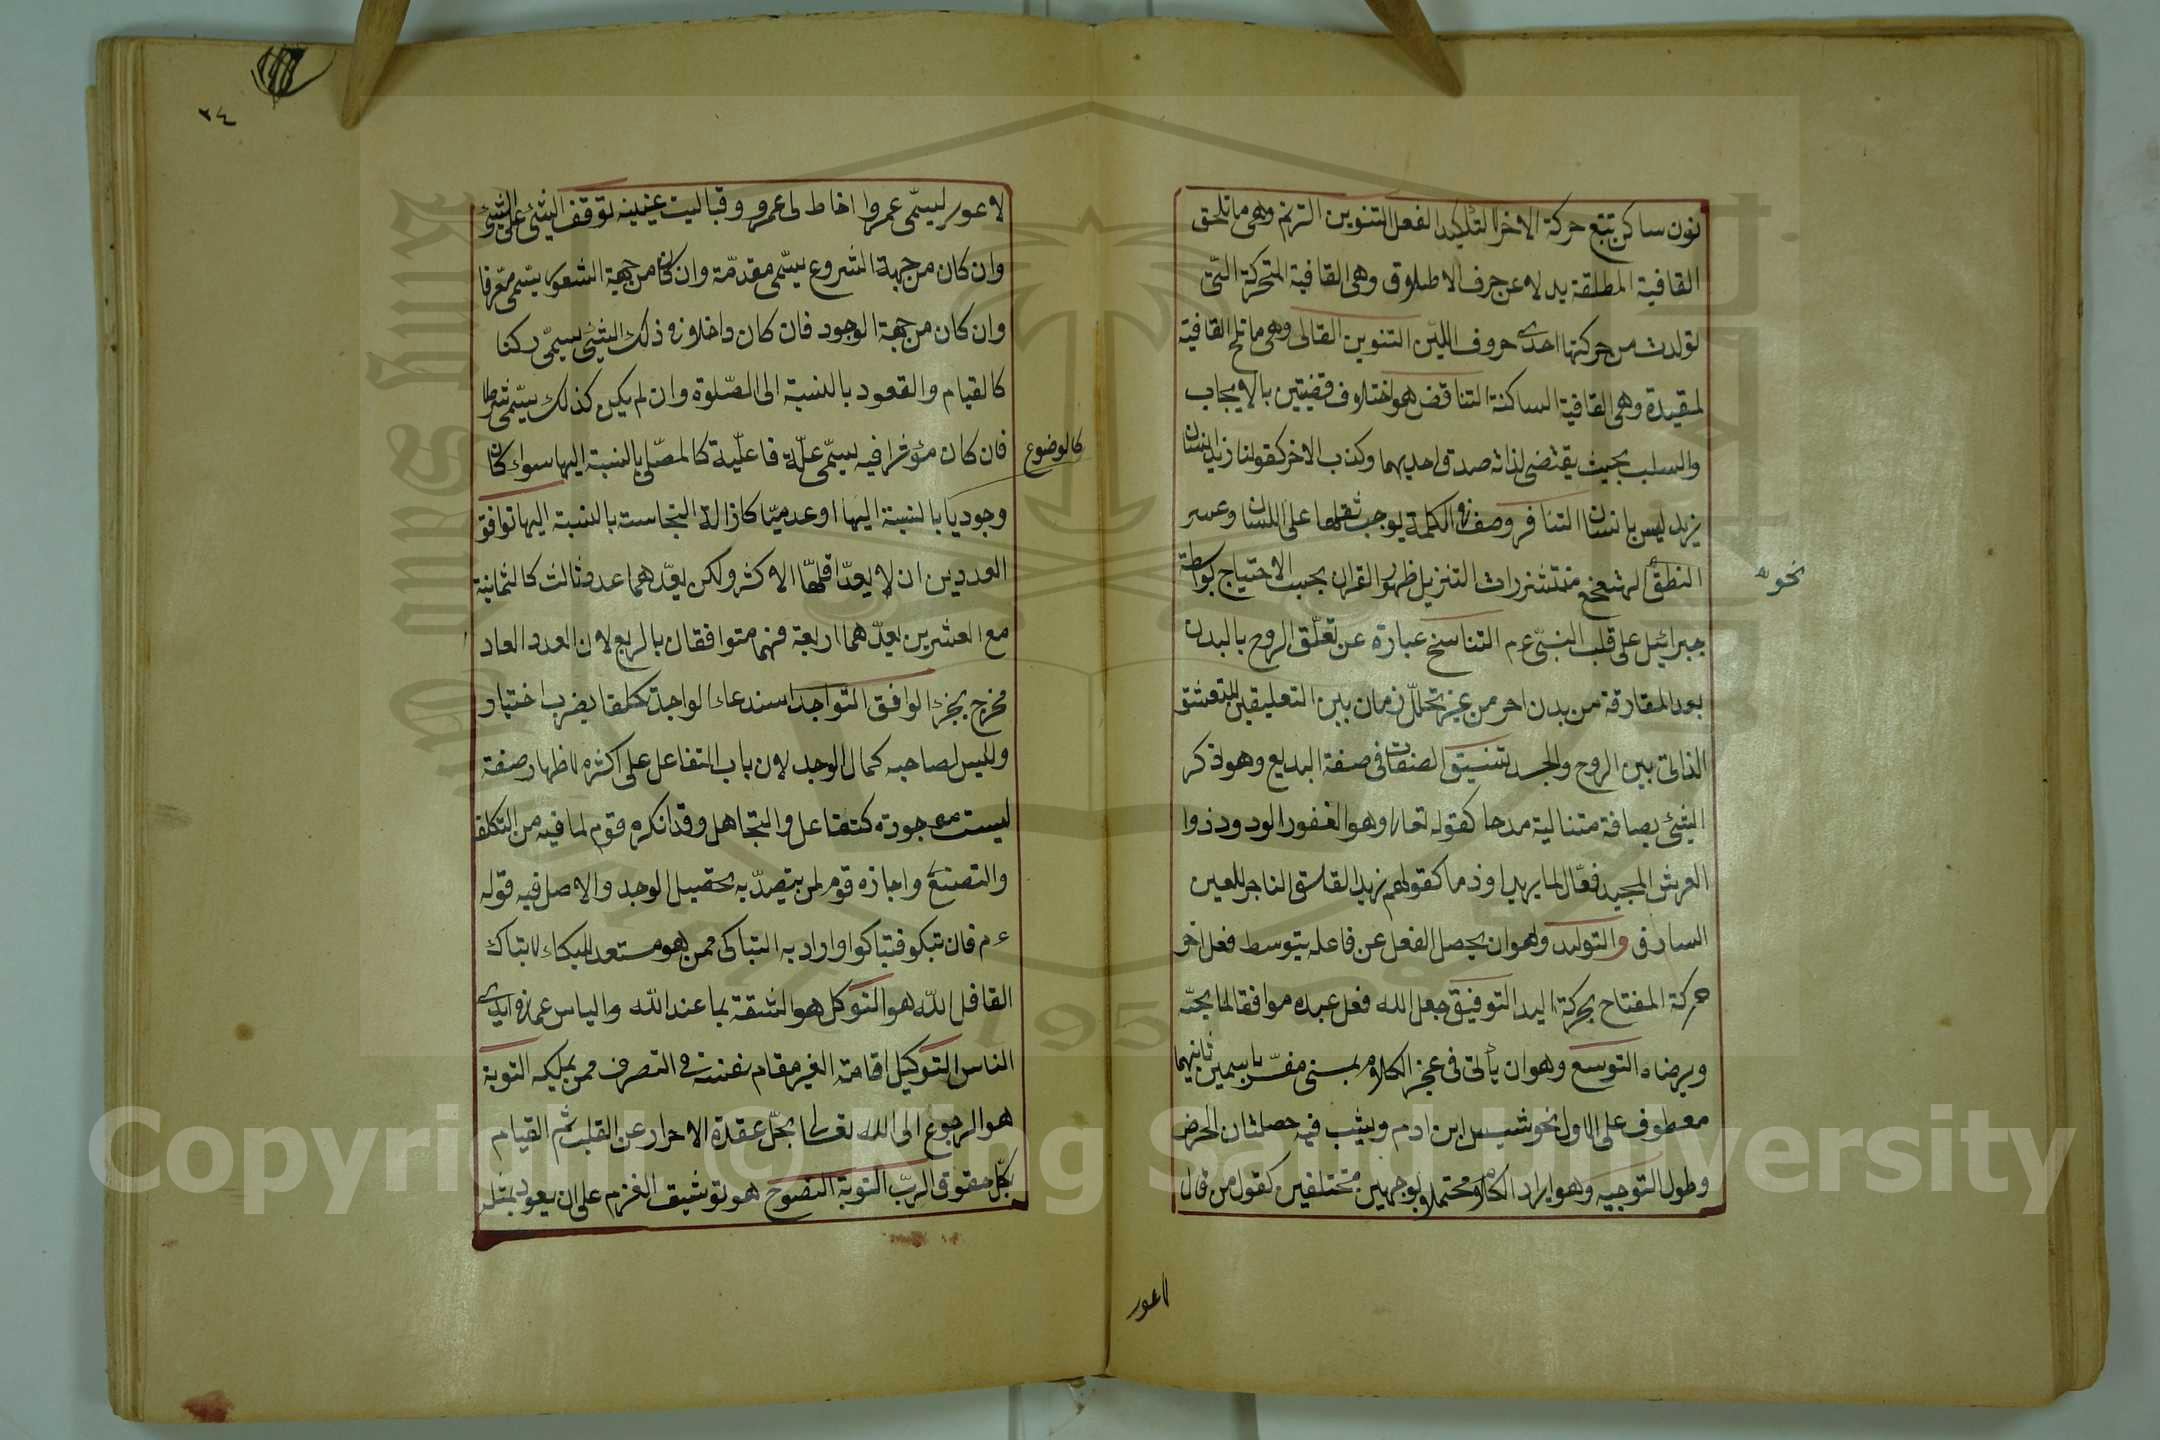 نون ساكن تتبع حركة الاخر لا لتاكيد الفعل التنوين الترنم وهى ما تلحق
القافية المطلقة بدلا عن حرف الاطلاق وهى القافية المتحركة التى
تولدت من حركتها احدى حروف اللين التنوين الغالى وهى ما تلحق القافية
لمقيدة وهى القافية الساكنة التناقض هو اختلاف قضيتين بالايجاب
والسلب بحيث يقتضى لذاته صدق احديهما وكذب الاخر كقولنا زيد انسان
زيد ليس بانسان التنافر وصف فى الكلمة يوجب ثقلها على اللسان وعسر
النطق نحو الهعخع ومستشزرات التنزيل ظهور القران بحسب الاحتياج بواسطة
جبرائيل على قلب النبى ءم التناسخ عبارة عن تعلق الروح بالبدن
بعد المفارقة من بدن اخر من غير تخلل زمان بين التعليقين للتعشق
الذاتى بين الروح والجسد تنسيق الصفات فى صفة البديع وهو ذكر
الشئ بصافة متتالية مدحا كقوله تعالى وهو الغفور الودود ذوا
العرش المجيد فعّال لما يريد او ذما كقولهم زيد الفاسق الفاجر اللعين
السارق والتوليد وهو ان يحصل الفعل عن فاعله بتوسط فعل اخر
حركة المفتاح بحركة اليد التوفيق جعل الله فعل عبده موافقا لما يحبّه
ويرضاه التوسع وهو ان يأتى فى عجز الكلام بمبنى مفسّر باسمين ثانيهما
معطوف على الاول نحو شيب ابن ادم ويشب فيه خصلتان الحرص
وطول التوجيه وهو ايراد الكلام محتملا لوجهين مختلفين كقول من قال
لاعور
٢٤
لاعور ليسمّى عمروا خاط لى عمرو وقبا ليت عينيه توقف الشئ على الشئ
وان كان من جهة الشروع يسمّى مقدمّة وان كان من جهة الشعور يسمى معّرفا
وان كان من جهة الوجود فان كان داخلا فى ذلك الشئ سيمّى ركنا
كالقيام والقعود بالنسبة الى الصّلوة وان لم يكن كذلك يسّمى شرطا
فان كان مؤثرا فيه يسمّى علّة فاعلّية كالمصلّى بالنسبة اليها سواء كان
كالوضوء
وجوديا بالنسبة اليها او عدميّا كازالة النجاست بالنسبة اليها توافق
العددين ان لا يعدّ اقلهما الاكثر ولكن يعدّهما عدد ثالث كالثمانية
مع العشرين يعدّهما اربعة فهما متوافقان بالربع لان العدد العاد
مخرج بجزء الوافق التواجد استدعاء الواجد تكلفا بضرب اختيار
وليس لصاحبه كمال الوجد لان باب التفاعل على اكثره لاظهار صفة
ليست موجودة كتغافل والتجاهل وقد انكره قوم لما فيه من التكلف
والتصنع واجازه قوم لمن يقصد به تحصيل الوجد والاصل فيه قوله
ءم فان تبكو فتباكوا واراد به التباكى ممن هو مستعد للبكاء لا تباك
الغافل لله هو التوكل هو الثقة بما عند الله والياس عما فى ايدى
الناس التوكيل اقامة الغير مقام نفسه فى التصرف ممن يملكه التوبة
هو الرجوع الى الله تعالى بحلّ عقدة الاصرار عن القلب ثم القيام
بكل حقوق الربّ التوبة النصوح هو توثيق العزم على ان يعود بمثله